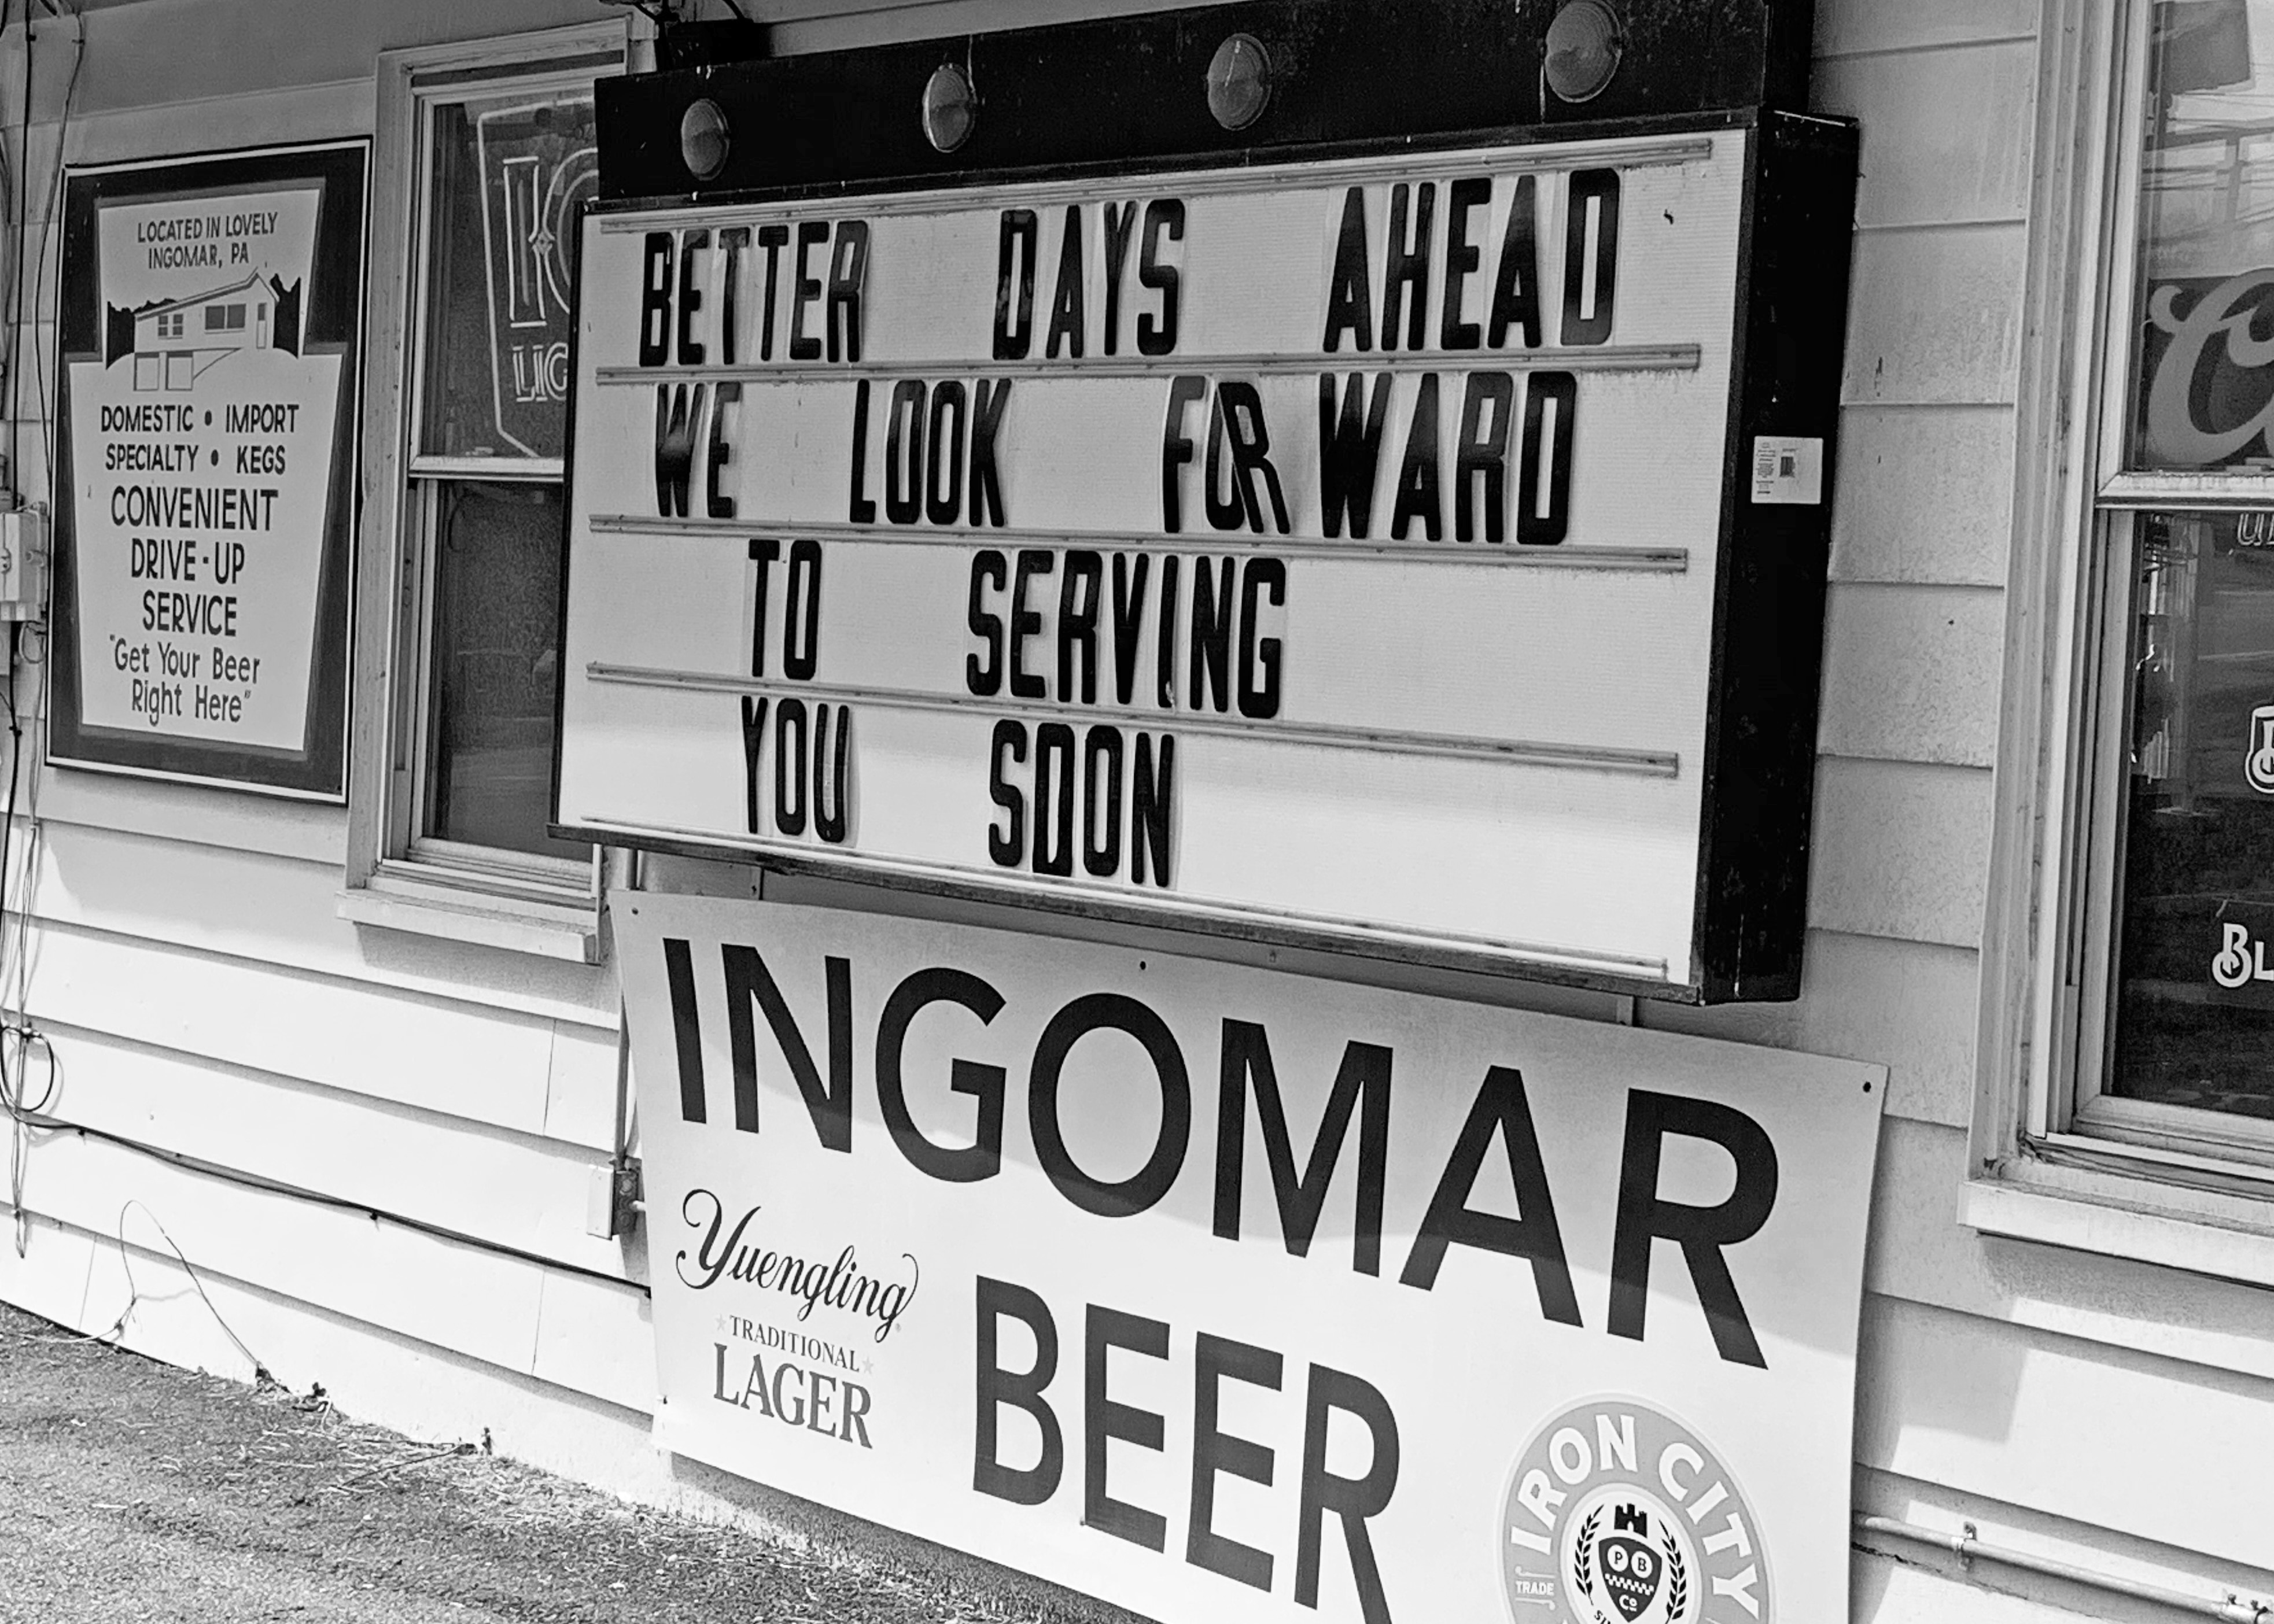 LOCATED IN LOVELY
INGOMAR, PA
DOMESTIC • IMPORT
SPECIALTY • KEGS
CONVENIENT
DRIVE-UP
SERVICE
"Get Your Beer
Right Here"
BETTER DAYS AHEAD
WE LOOK FORWARD
TO SERVING
YOU SOON
INGOMAR
BEER
Yuengling
TRADITIONAL
LAGER
IRON CITY
TRADE
P B
Co